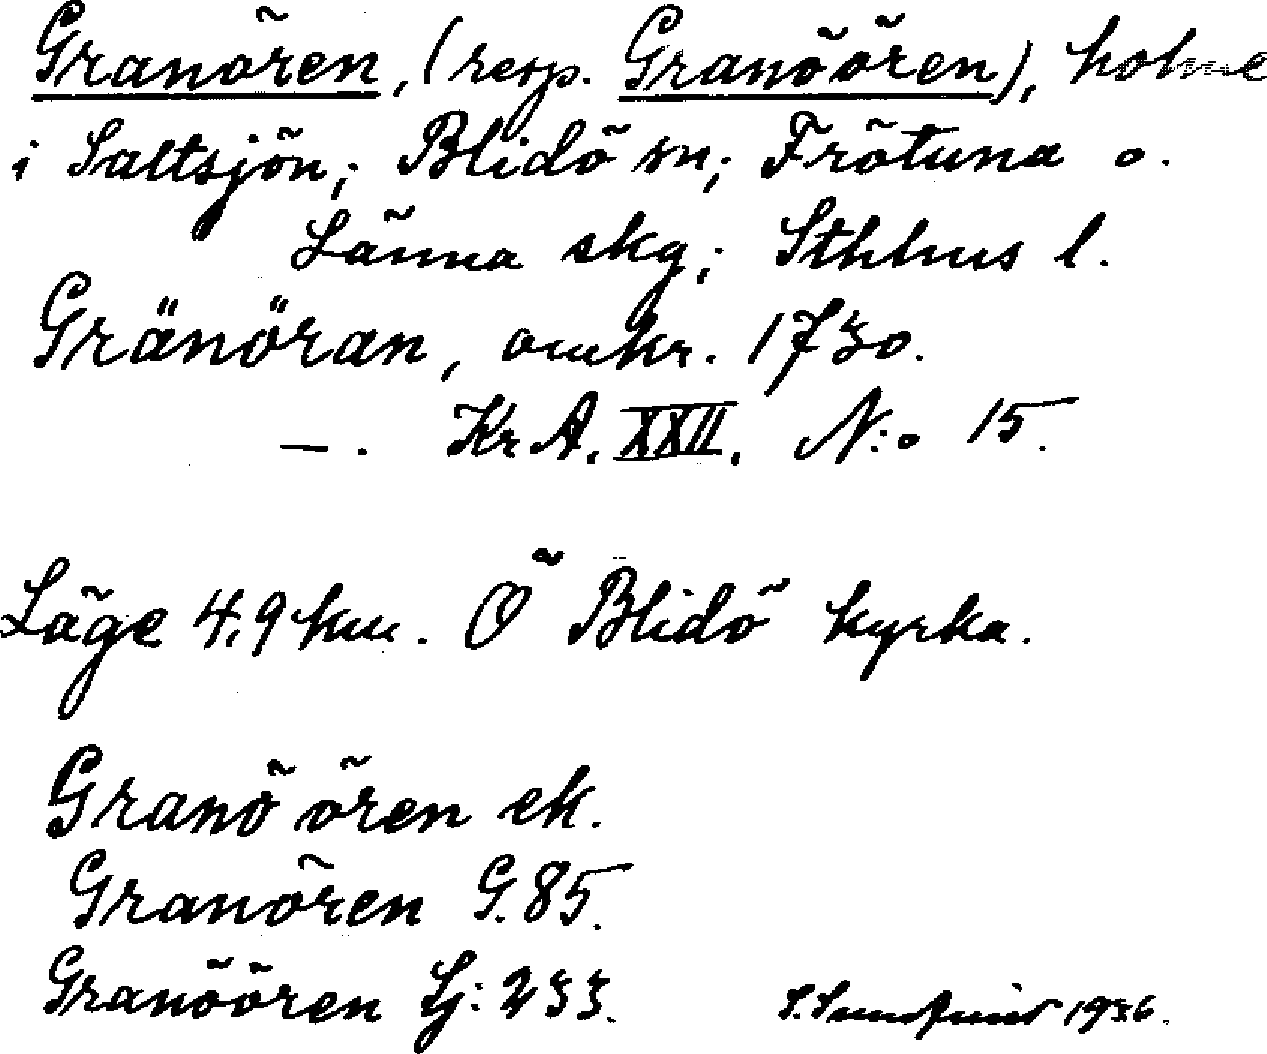 Granören, (resp. Granöören), holme
i Saltsjön; Blidö sn; Frötuna o.
Länna skg; Sthlms l.
Gränöran, omkr. 1730.
—. Kr A. XXII. N:o 15.
Läge 4,9 km. Ö Blidö kyrka.
Granö ören ek.
Granören G. 85.
Granöören Sj: 233.
S. Sundquist 1936.